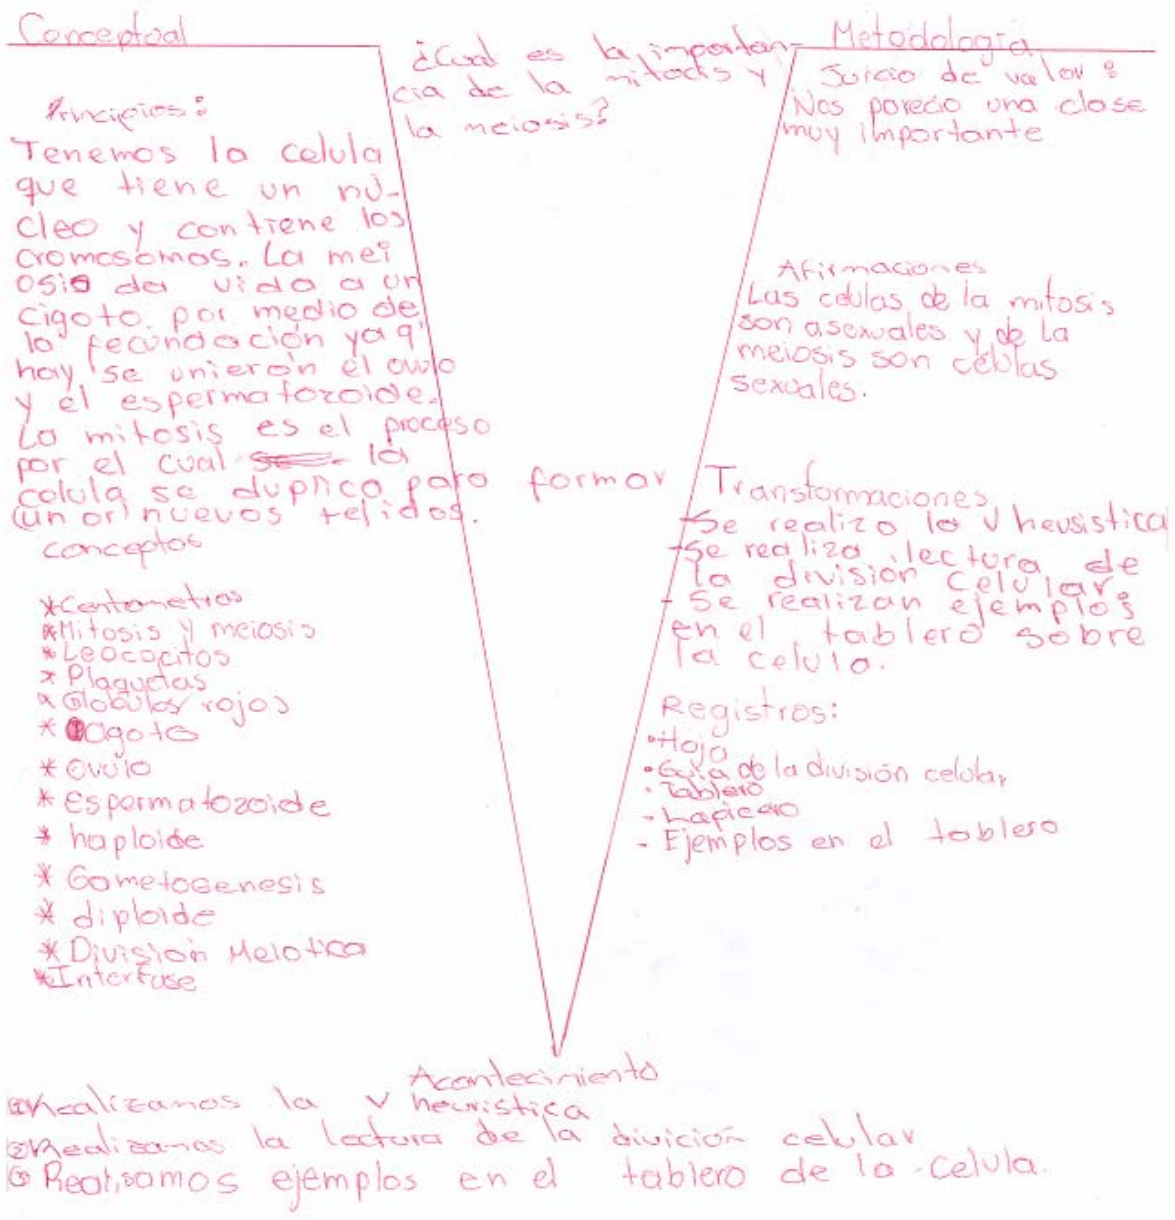 Conceptual
Principios:
Tenemos la celula
que tiene un nú-
cleo y contiene los
cromosomas. La mei
osis da vida a un
cigoto. por medio de
la fecundación ya q'
hay se unieron el ovulo
y el espermatozoide.
La mitosis es el proceso
por el cual la
celula se duplica para formar
nuevos tejidos.
conceptos
*Centometros
*Mitosis y meiosis
*Leococitos
* Plaquetas
* Globulos rojos
* 
* Ovulo
* Espermatozoide
* haploide
* Gametogenesis
* diploide
* División Meiotica
*Interfase
¿Cual es la importan-
cia de la mitocis y
la meiosis?
Metodología
Juicio de valor:
Nos parecio una clase
muy importante
Afirmaciones
Las celulas de la mitosis
son asexuales y de la
meiosis son celulas
sexuales.
Transformaciones
-Se realizo la V heusistica
-Se realiza lectura de
la division celular.
- Se realizan ejemplos
en el tablero sobre
la celula.
Registros:
•Hoja
•Guia de la división celular
• Tablero
- Lapicero
- Ejemplos en el tablero
Acontecimiento
① Realizamos la V heuristica
② Realizamos la lectura de la divición celular
③ Realisamos ejemplos en el tablero de la celula.